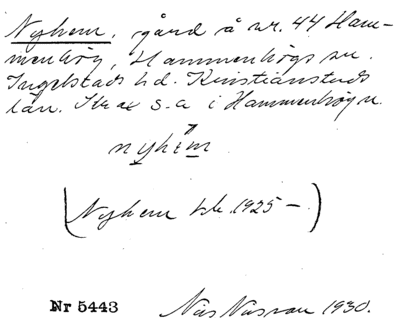 Nyhem, gård å nr. 44 Ham-
menhög, Hammenhögs sn.
Ingelstads hd. Kristianstads
län. Strax s.a i Hammenhög
nyhem
(Nyhem hb. 1925 –)
Nr 5443 Nils 1930.